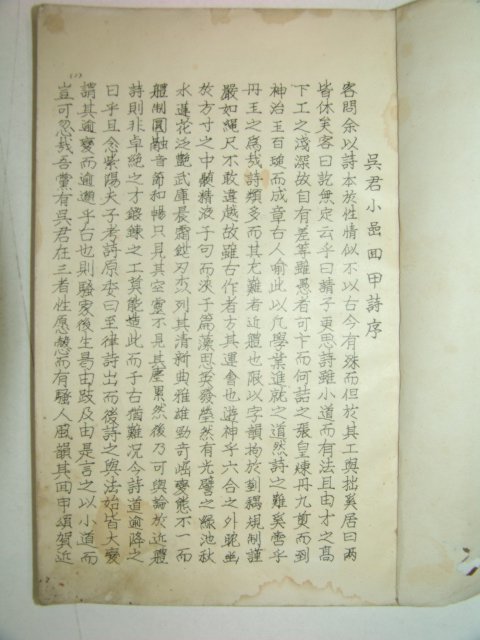 吳君小邑回甲詩序
客問余以詩本於性情似不以古今有殊而但於其工與拙奚居曰兩
皆休矣客曰訖無定云乎曰請子更思詩雖小道而有法且由才之高
下工之淺深故自有差等雖愚者可卞而何詰之張皇煉丹九煎而到
神治玉百琢而成章古人喻此以凡學業進就之道然詩之難奚啻乎
丹玉之為哉詩類多而其尤難者近體也限以字韻拘於對耦規制謹
嚴如繩尺不敢違越故雖古作者方其運會也遊神乎六合之外昵幽
於方寸之中騁精液于句而浹于篇藻思英發瑩然有光譬之綠池秋
水蓮花泛艶武庫晨霜鋩刃杰列其清新典雅雄勁奇崛變態不一而
體制圓融音節和暢只見其空靈不見其塵累然後乃可與論於近體
詩則非卓絶之才鍛鍊之工莫能造此而于古猶難况今詩道逾降之
日乎且念紫陽夫子考詩原本曰至律詩出而後詩之與法始皆大變
謂其逾變而逾邈乎古也則騷家後生曷由跂及由是言之以小道而
豈可忽哉吾黨有吳君在三者性愿慤而有騷人風韻其回甲頌賀近